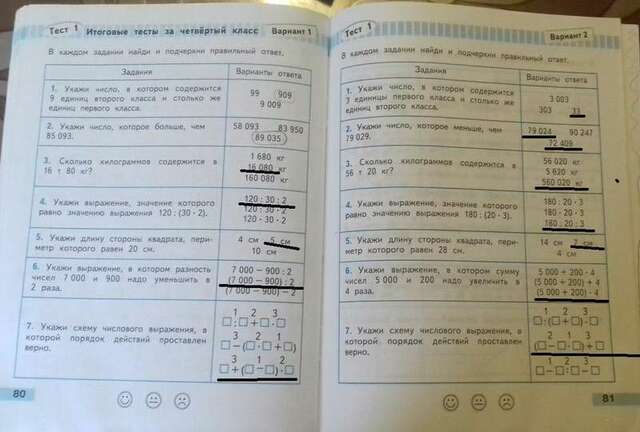 Тест 1 Итоговые тесты за четвёртый класс Вариант 1
В каждом задании найди и подчеркни правильный ответ.
Задания Варианты ответа
1. Укажи число, в котором содержится
9 единиц второго класса и столько же
единиц первого класса.
99 909
9 009
2. Укажи число, которое больше, чем
85 093.
58 093 83 950
89 035
3. Сколько килограммов содержится в
16 т 80 кг?
1 680 кг
16 080 кг
160 080 кг
4. Укажи выражение, значение которого
равно значению выражения 120 : (30 · 2).
120 : 30 : 2
120 : 30 · 2
120 · 30 · 2
5. Укажи длину стороны квадрата, пери-
метр которого равен 20 см.
4 см 5 см
10 см
6. Укажи выражение, в котором разность
чисел 7 000 и 900 надо уменьшить в
2 раза.
7 000 − 900 : 2
(7 000 − 900) : 2
(7 000 − 900) − 2
7. Укажи схему числового выражения, в
которой порядок действий проставлен
верно.
1 2 3
□ : □ + □ · □
3 2 1
□ − (□ · □ + □)
3 1 2
□ + (□ − □) · □
80
Тест 1 Вариант 2
В каждом задании найди и подчеркни правильный ответ.
Задания Варианты ответа
1. Укажи число, в котором содержится
3 единицы первого класса и столько же
единиц второго класса.
3 003
303 33
2. Укажи число, которое меньше, чем
79 029.
79 024 90 247
72 409
3. Сколько килограммов содержится в
56 т 20 кг?
56 020 кг
5 620 кг
560 020 кг
4. Укажи выражение, значение которого
равно значению выражения 180 : (20 · 3).
180 : 20 · 3
180 · 20 · 3
180 : 20 : 3
5. Укажи длину стороны квадрата, пери-
метр которого равен 28 см.
14 см 7 см
4 см
6. Укажи выражение, в котором сумму
чисел 5 000 и 200 надо увеличить в
4 раза.
5 000 + 200 · 4
(5 000 + 200) + 4
(5 000 + 200) · 4
7. Укажи схему числового выражения, в
которой порядок действий проставлен
верно.
1 2 3
□ : (□ · □ + □)
2 1 3
□ − (□ · □) + □
1 2 3
□ · □ : □ − □
81